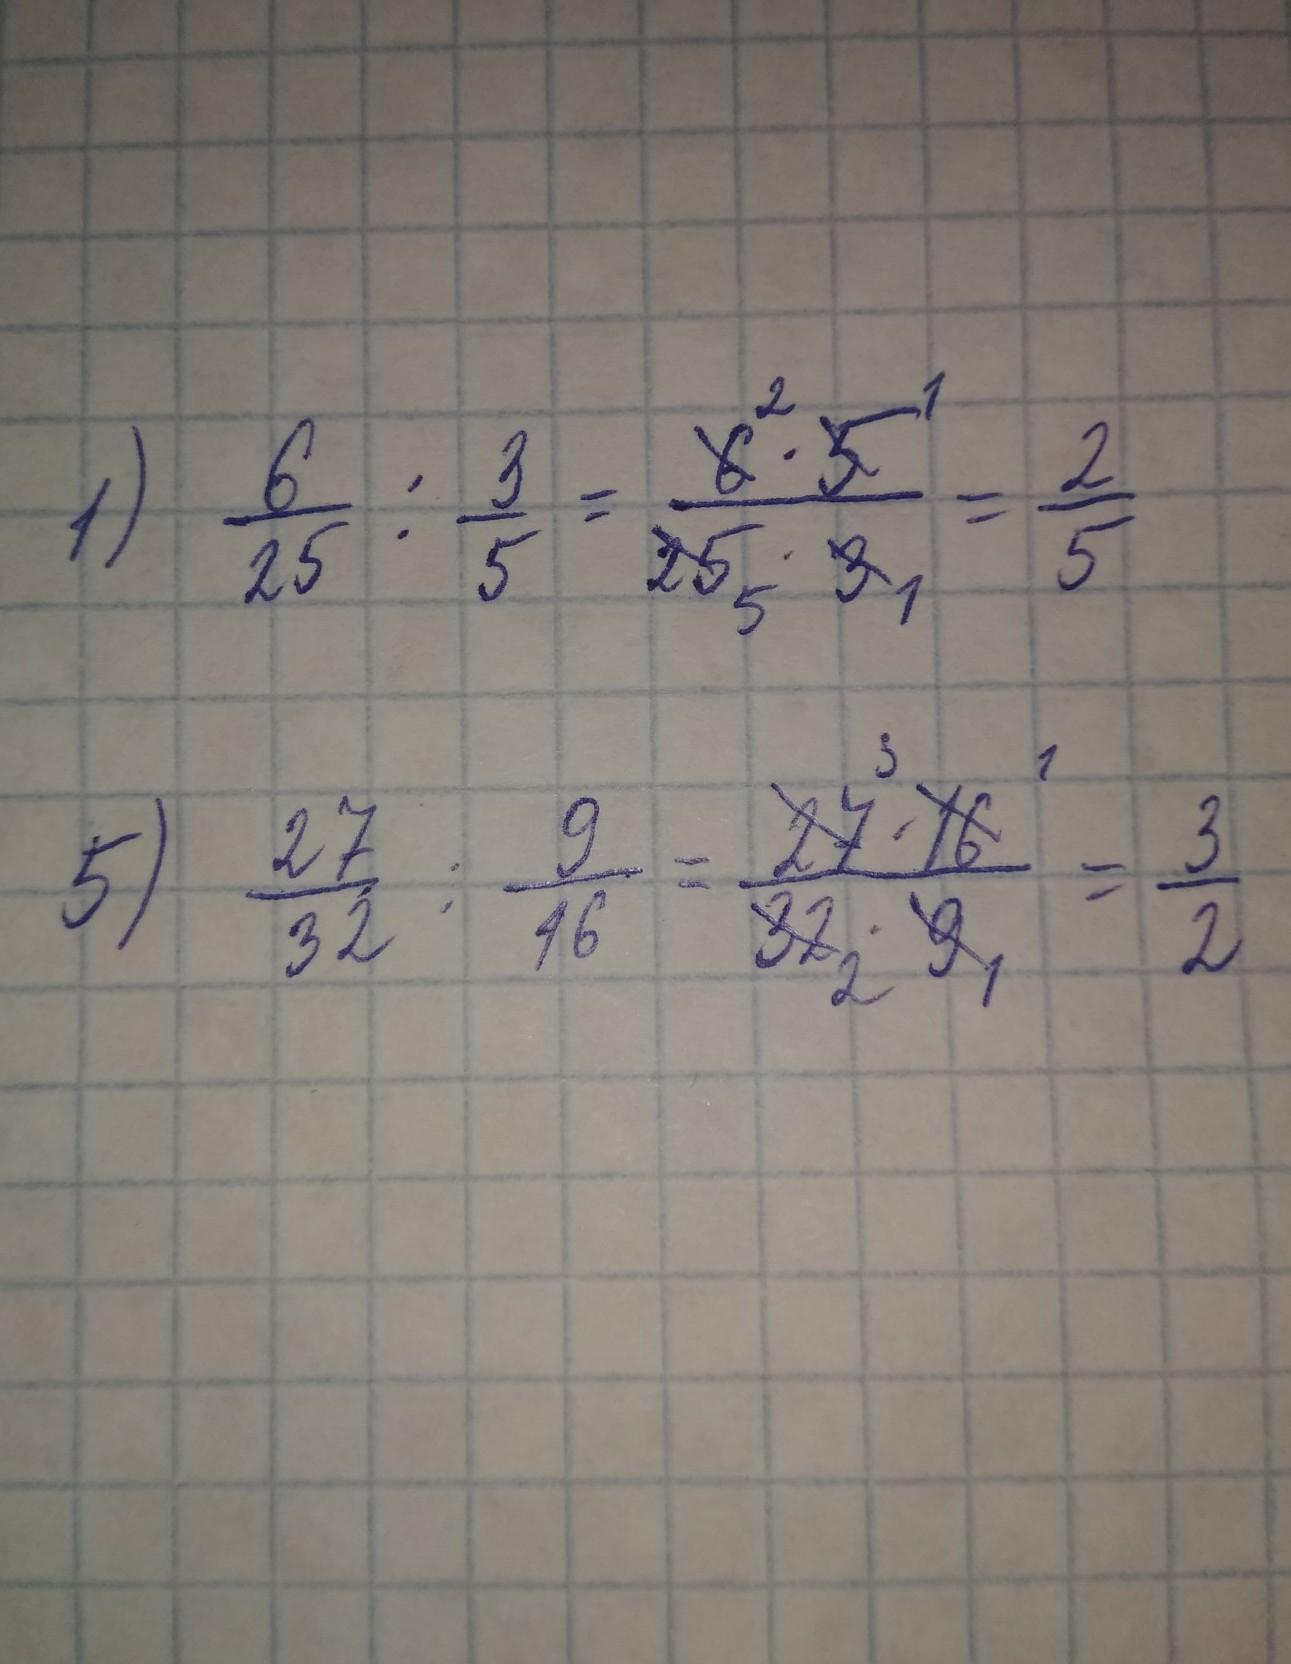 1) 6/25 : 3/5 = 6² · 5¹ / 25₅ · 3₁ = 2/5
5) 27/32 : 9/16 = 27³ · 16¹ / 32₂ · 9₁ = 3/2